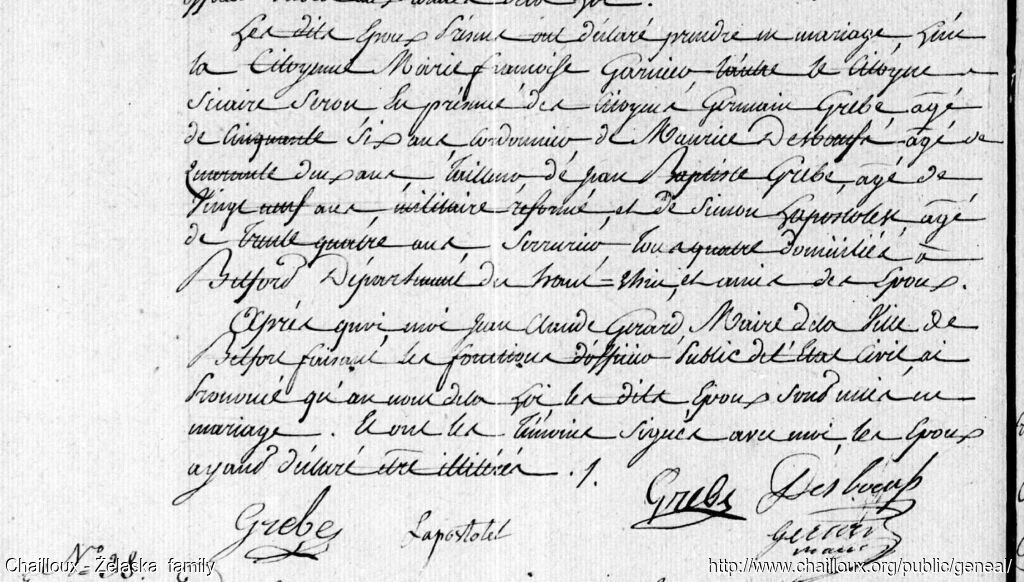 Les dits Epoux présens ont déclaré prendre en mariage l'un
la Citoyenne Marie françoise Garnier l'autre le Citoyen
Sicaire Seron En présence des citoyens Germain Grebe agé
de Cinquante Six ans cordonnier de Maurice Desboeufs agé de
quarante deux ans Tailleur de Jean Baptiste Grebe, agé de
Vingt neuf ans militaire réformé, et De Simon Lapostolet agé
de Trente quatre ans Serrurier Tous quatre domiciliés à
Belford Département du haut=Rhin, et amis des Epoux.
Après quoi moi Jean Claude Gérard, Maire de la Ville de
Belfort faisant les fonctions d'officier Public de l'Etat Civil ai
Prononcé qu'au nom de la Loi les dits Epoux sont unis en
mariage. Et ont les Témoins Signés avec moi, les Epoux
ayant déclaré être illitérés ./.
Grebe Lapostolet Grebe Desboeufs
maire
N.° 98.
Chailloux - Żelaska family
http://www.chailloux.org/public/geneal/